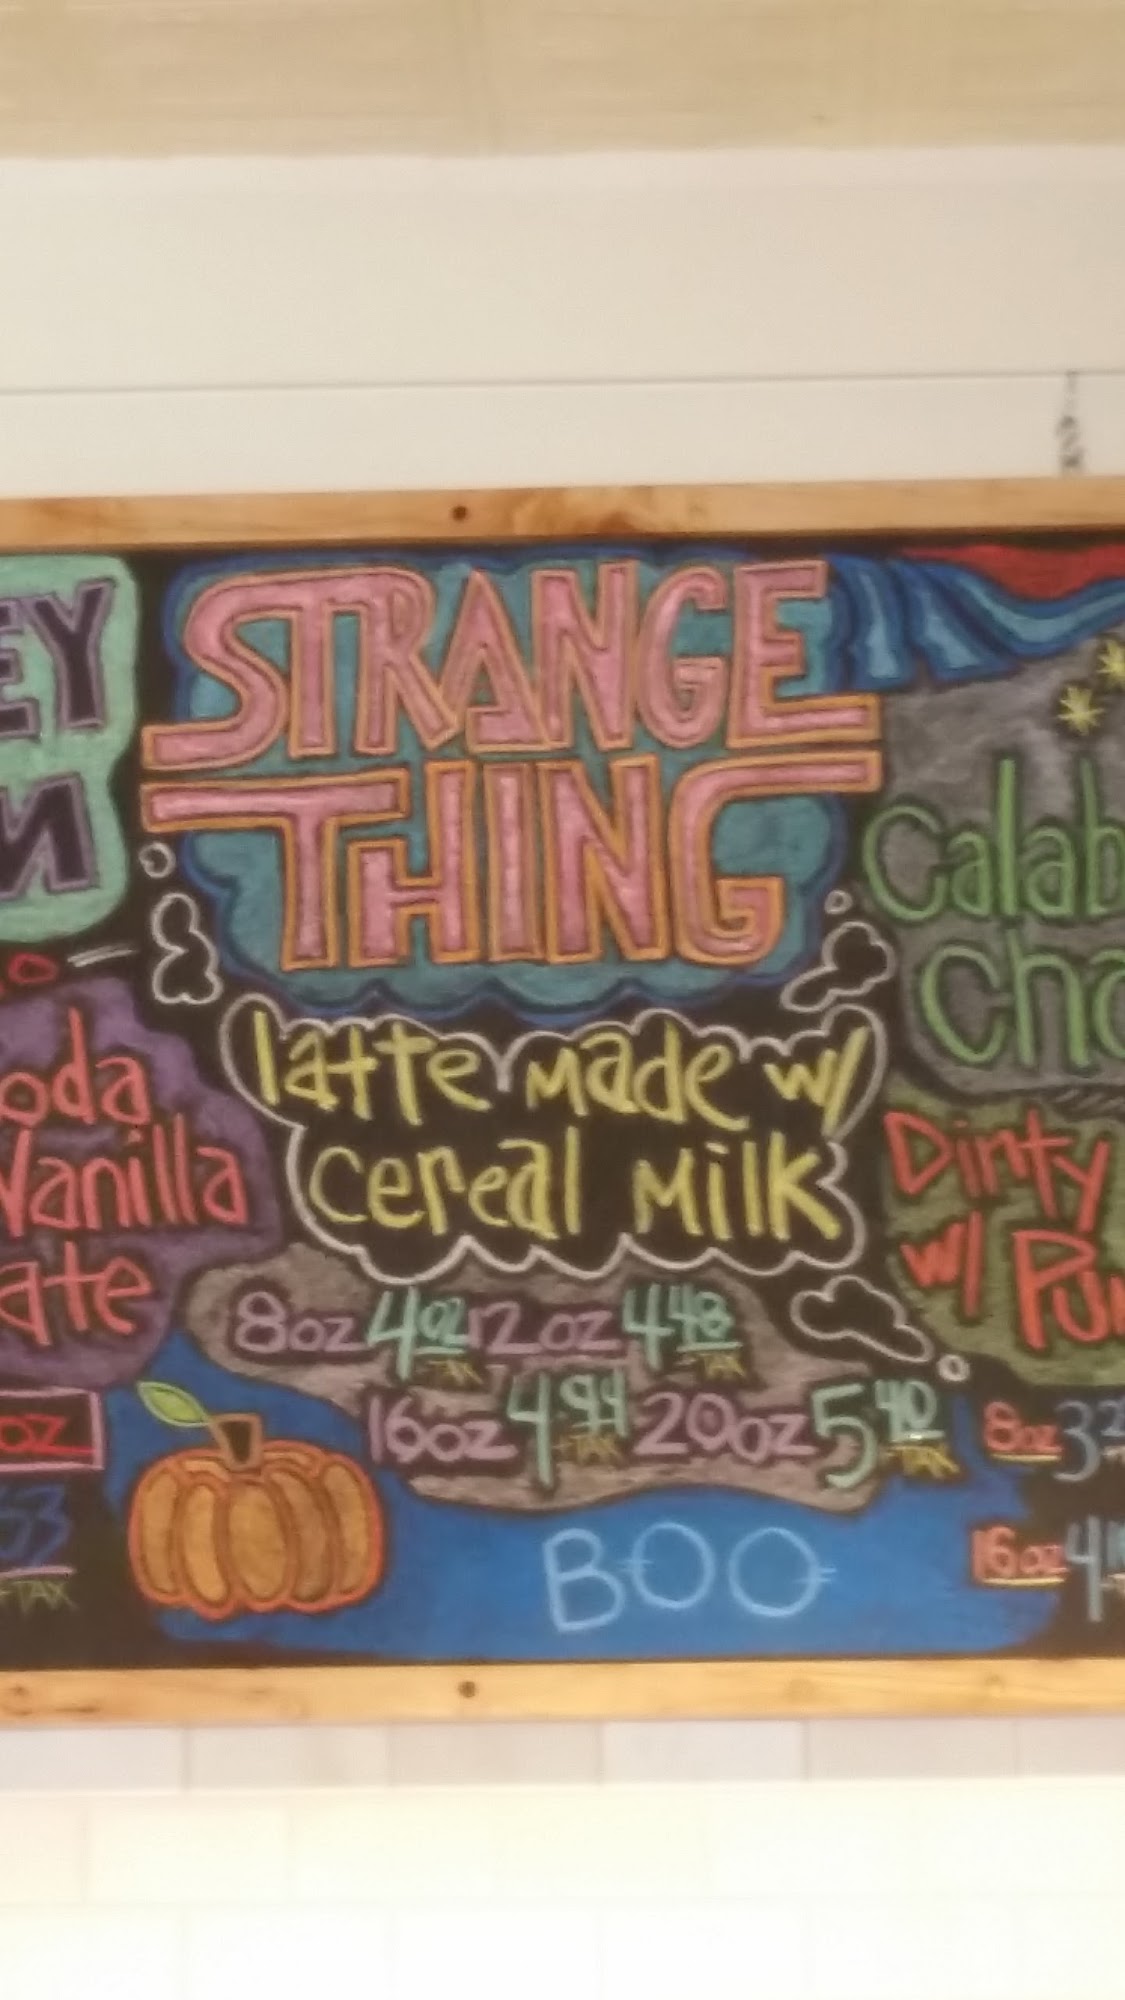 EY
STRANGE
THING
latte made w/
cereal milk
8oz 4.02 +TAX 12oz 4.48 +TAX
16oz 4.94 +TAX 20oz 5.40 +TAX
BOO
oda
Vanilla
ate
oz
53
+TAX
Calab
Cha
Dirty
w/ Pu
8oz 3
16oz 4